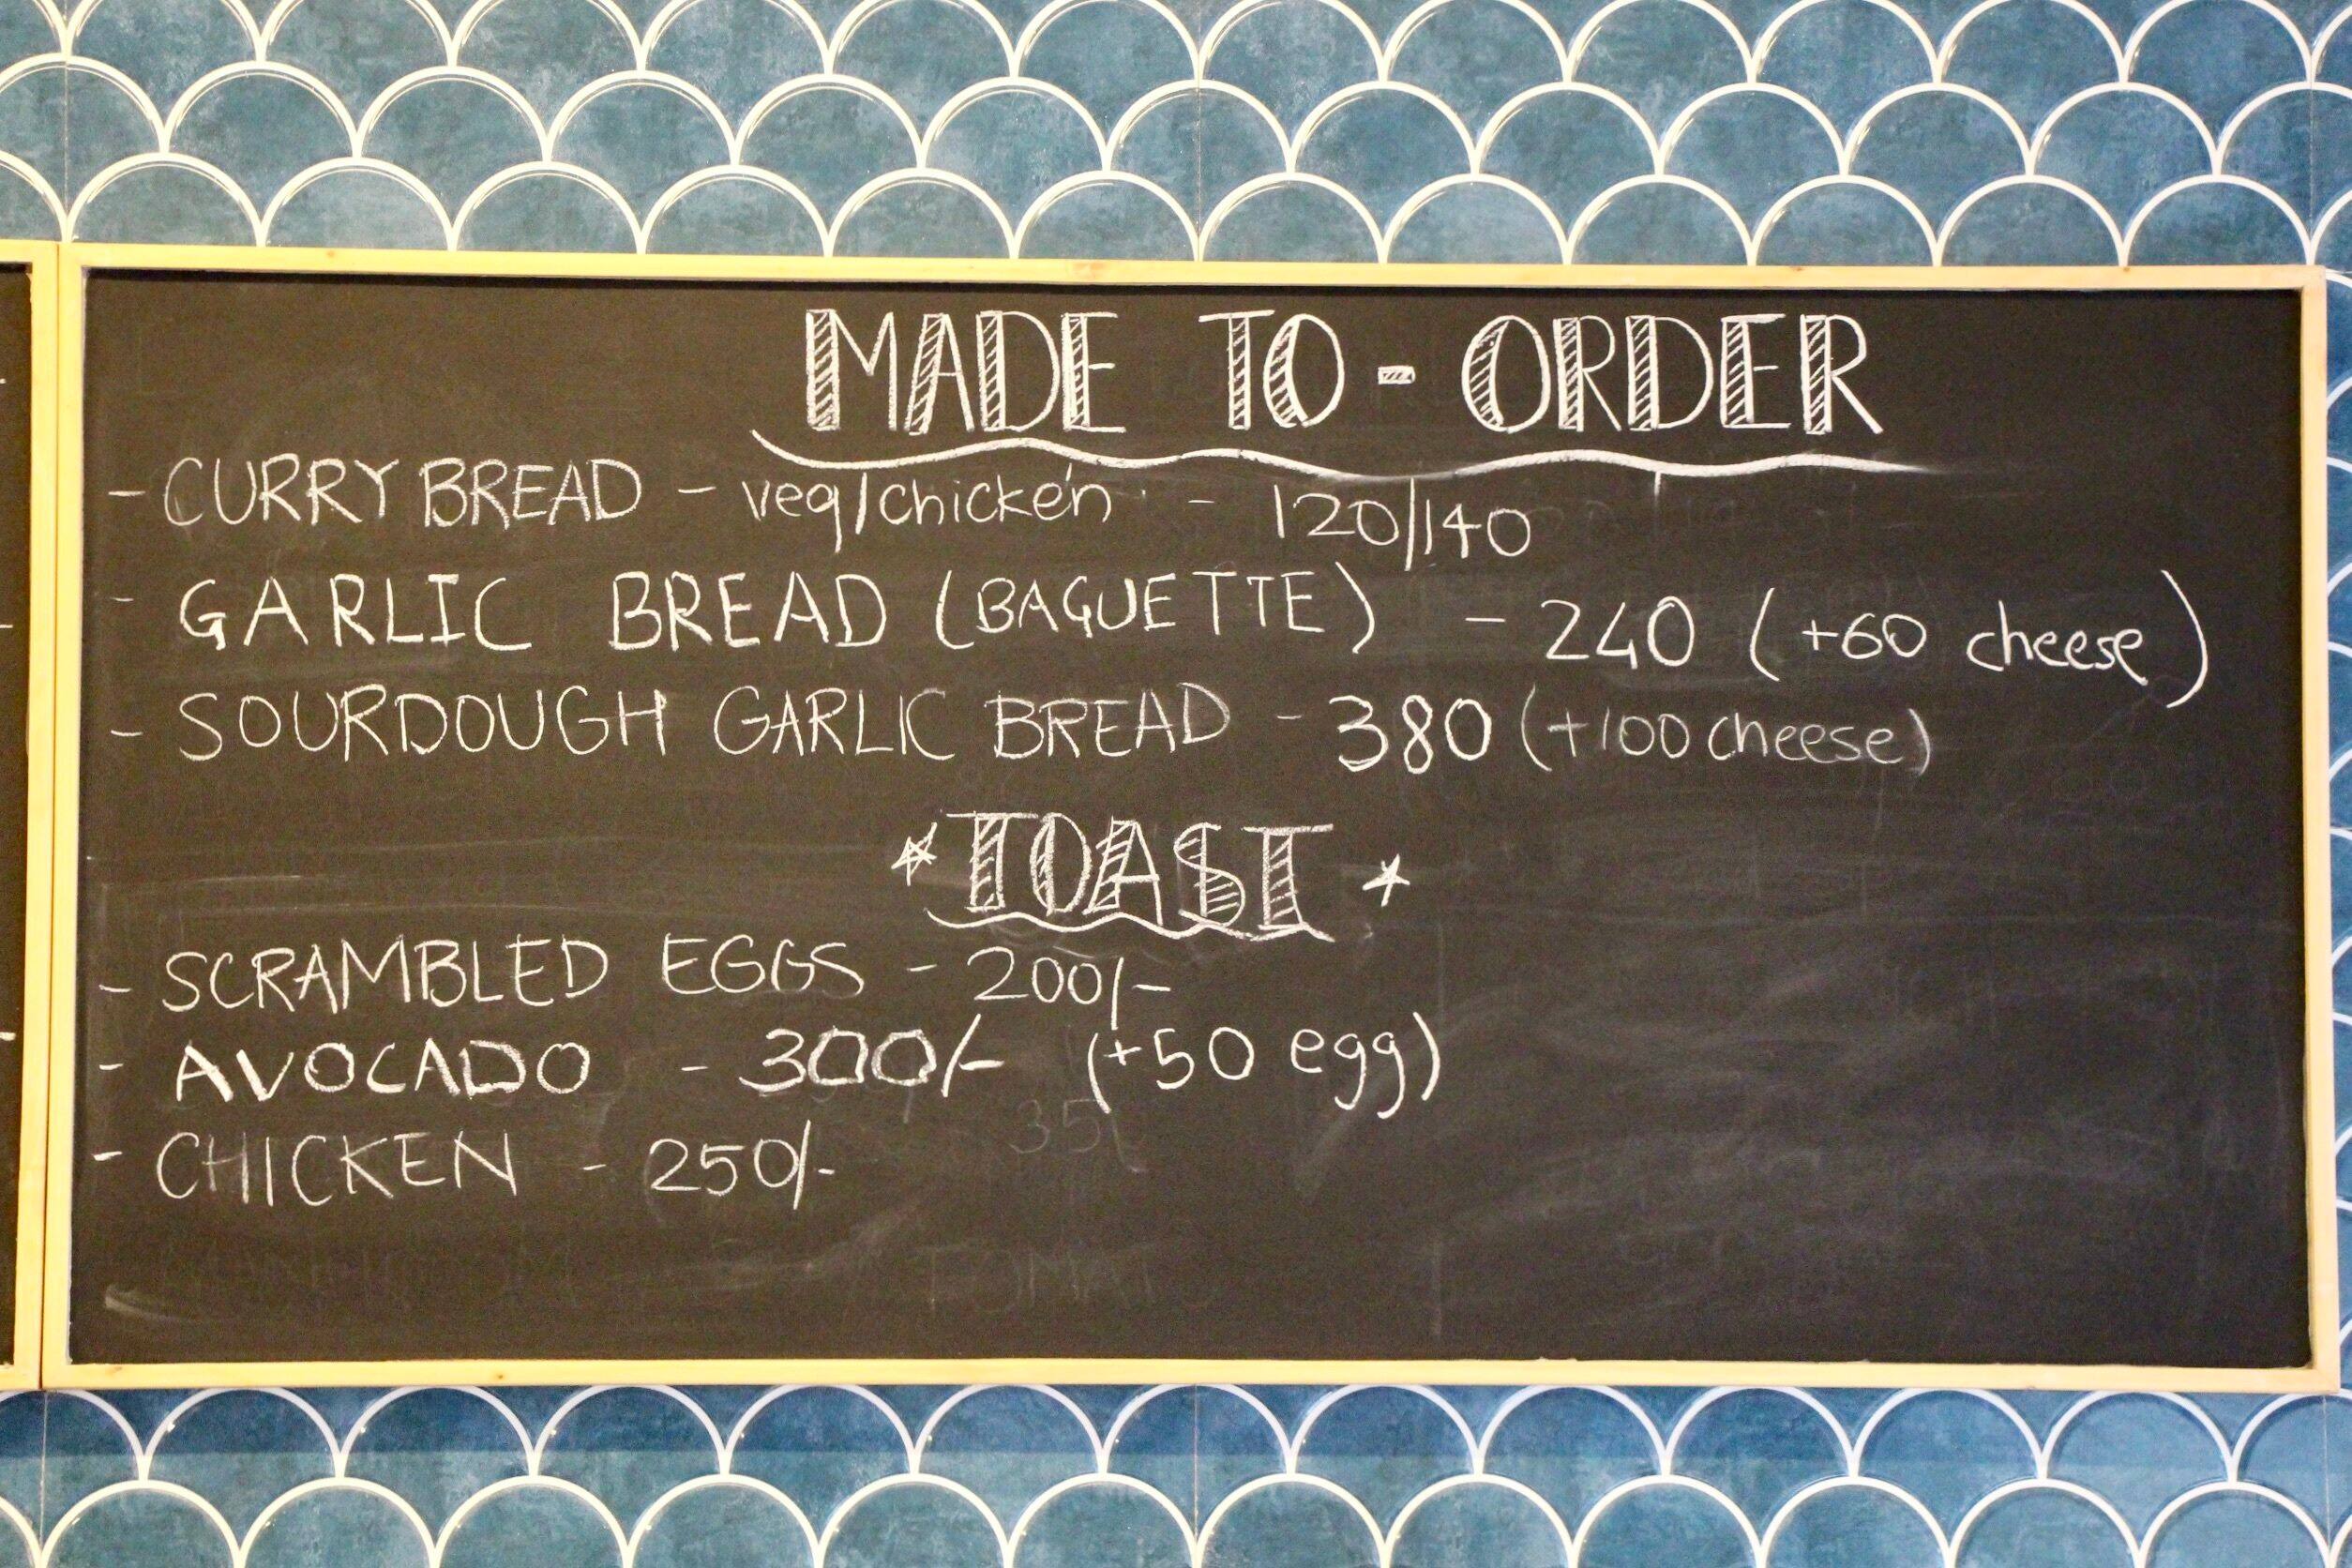 MADE TO-ORDER
- CURRY BREAD - veg/chicken - 120/140
- GARLIC BREAD (BAGUETTE) - 240 (+60 cheese)
- SOURDOUGH GARLIC BREAD - 380 (+100 cheese)
* TOAST *
- SCRAMBLED EGGS - 200/-
- AVOCADO - 300/- (+50 egg)
- CHICKEN - 250/-